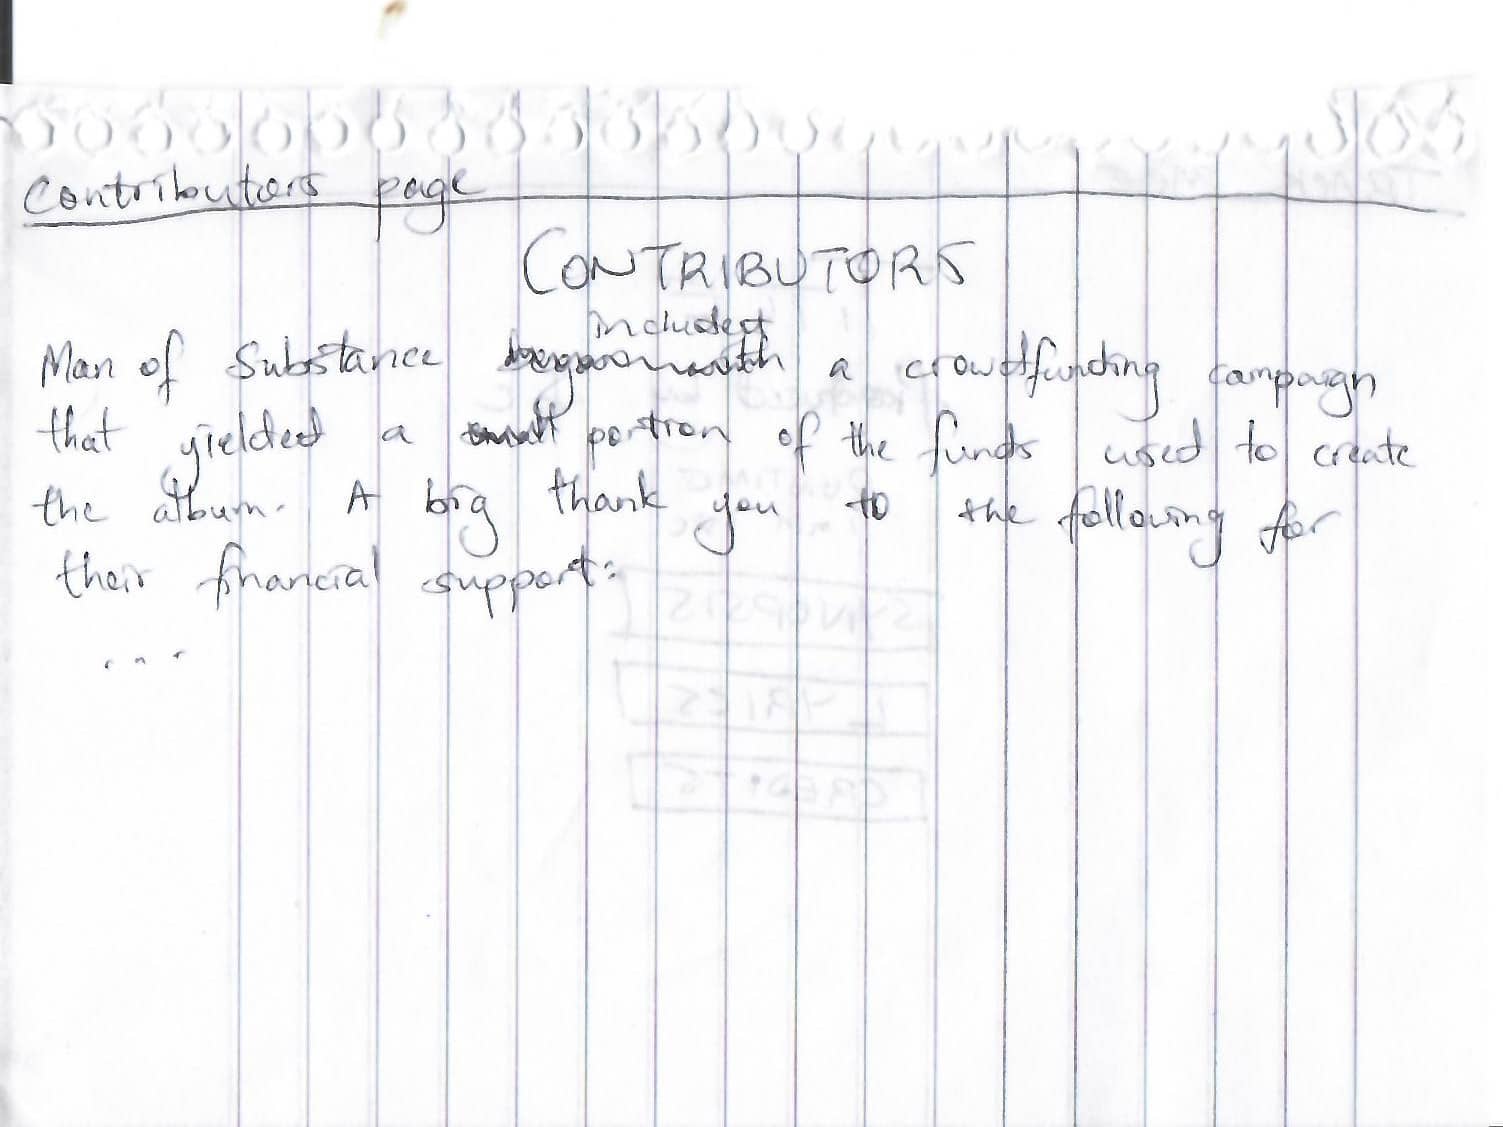 Contributors page
CONTRIBUTORS
included
Man of Substance began with a crowdfunding campaign
that yielded a small portion of the funds used to create
the album. A big thank you to the following for
their financial support:
...
SYNOPSIS
LYRICS
CREDITS